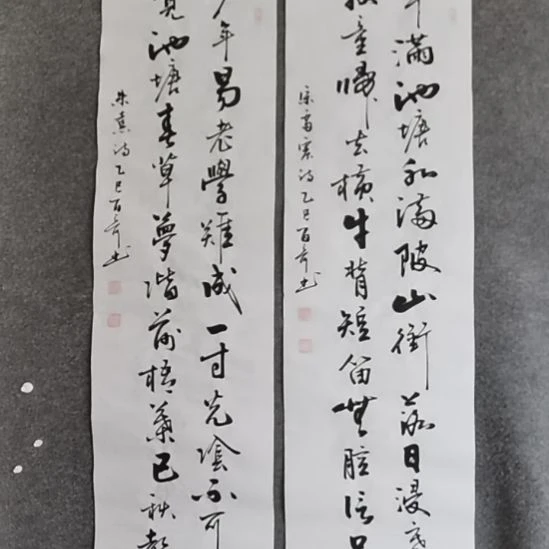 滿池塘水滿陂山銜落日浸寒
童歸去横牛背短笛無腔信口
宋雷震诗乙巳百奇书
年易老學難成一寸光陰不可
覺池塘春草夢階前梧葉已秋聲
朱熹诗乙巳百奇书